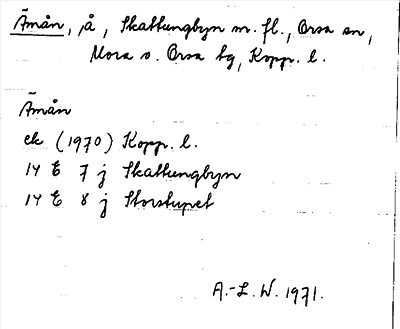 Ämån, å, Skattungbyn m. fl., Orsa sn,
Mora o. Orsa tg, Kopp. l.
Ämån
ek (1970) Kopp. l.
14 E 7 j Skattungbyn
14 E 8 j Storstupet
A.-L. W. 1971.